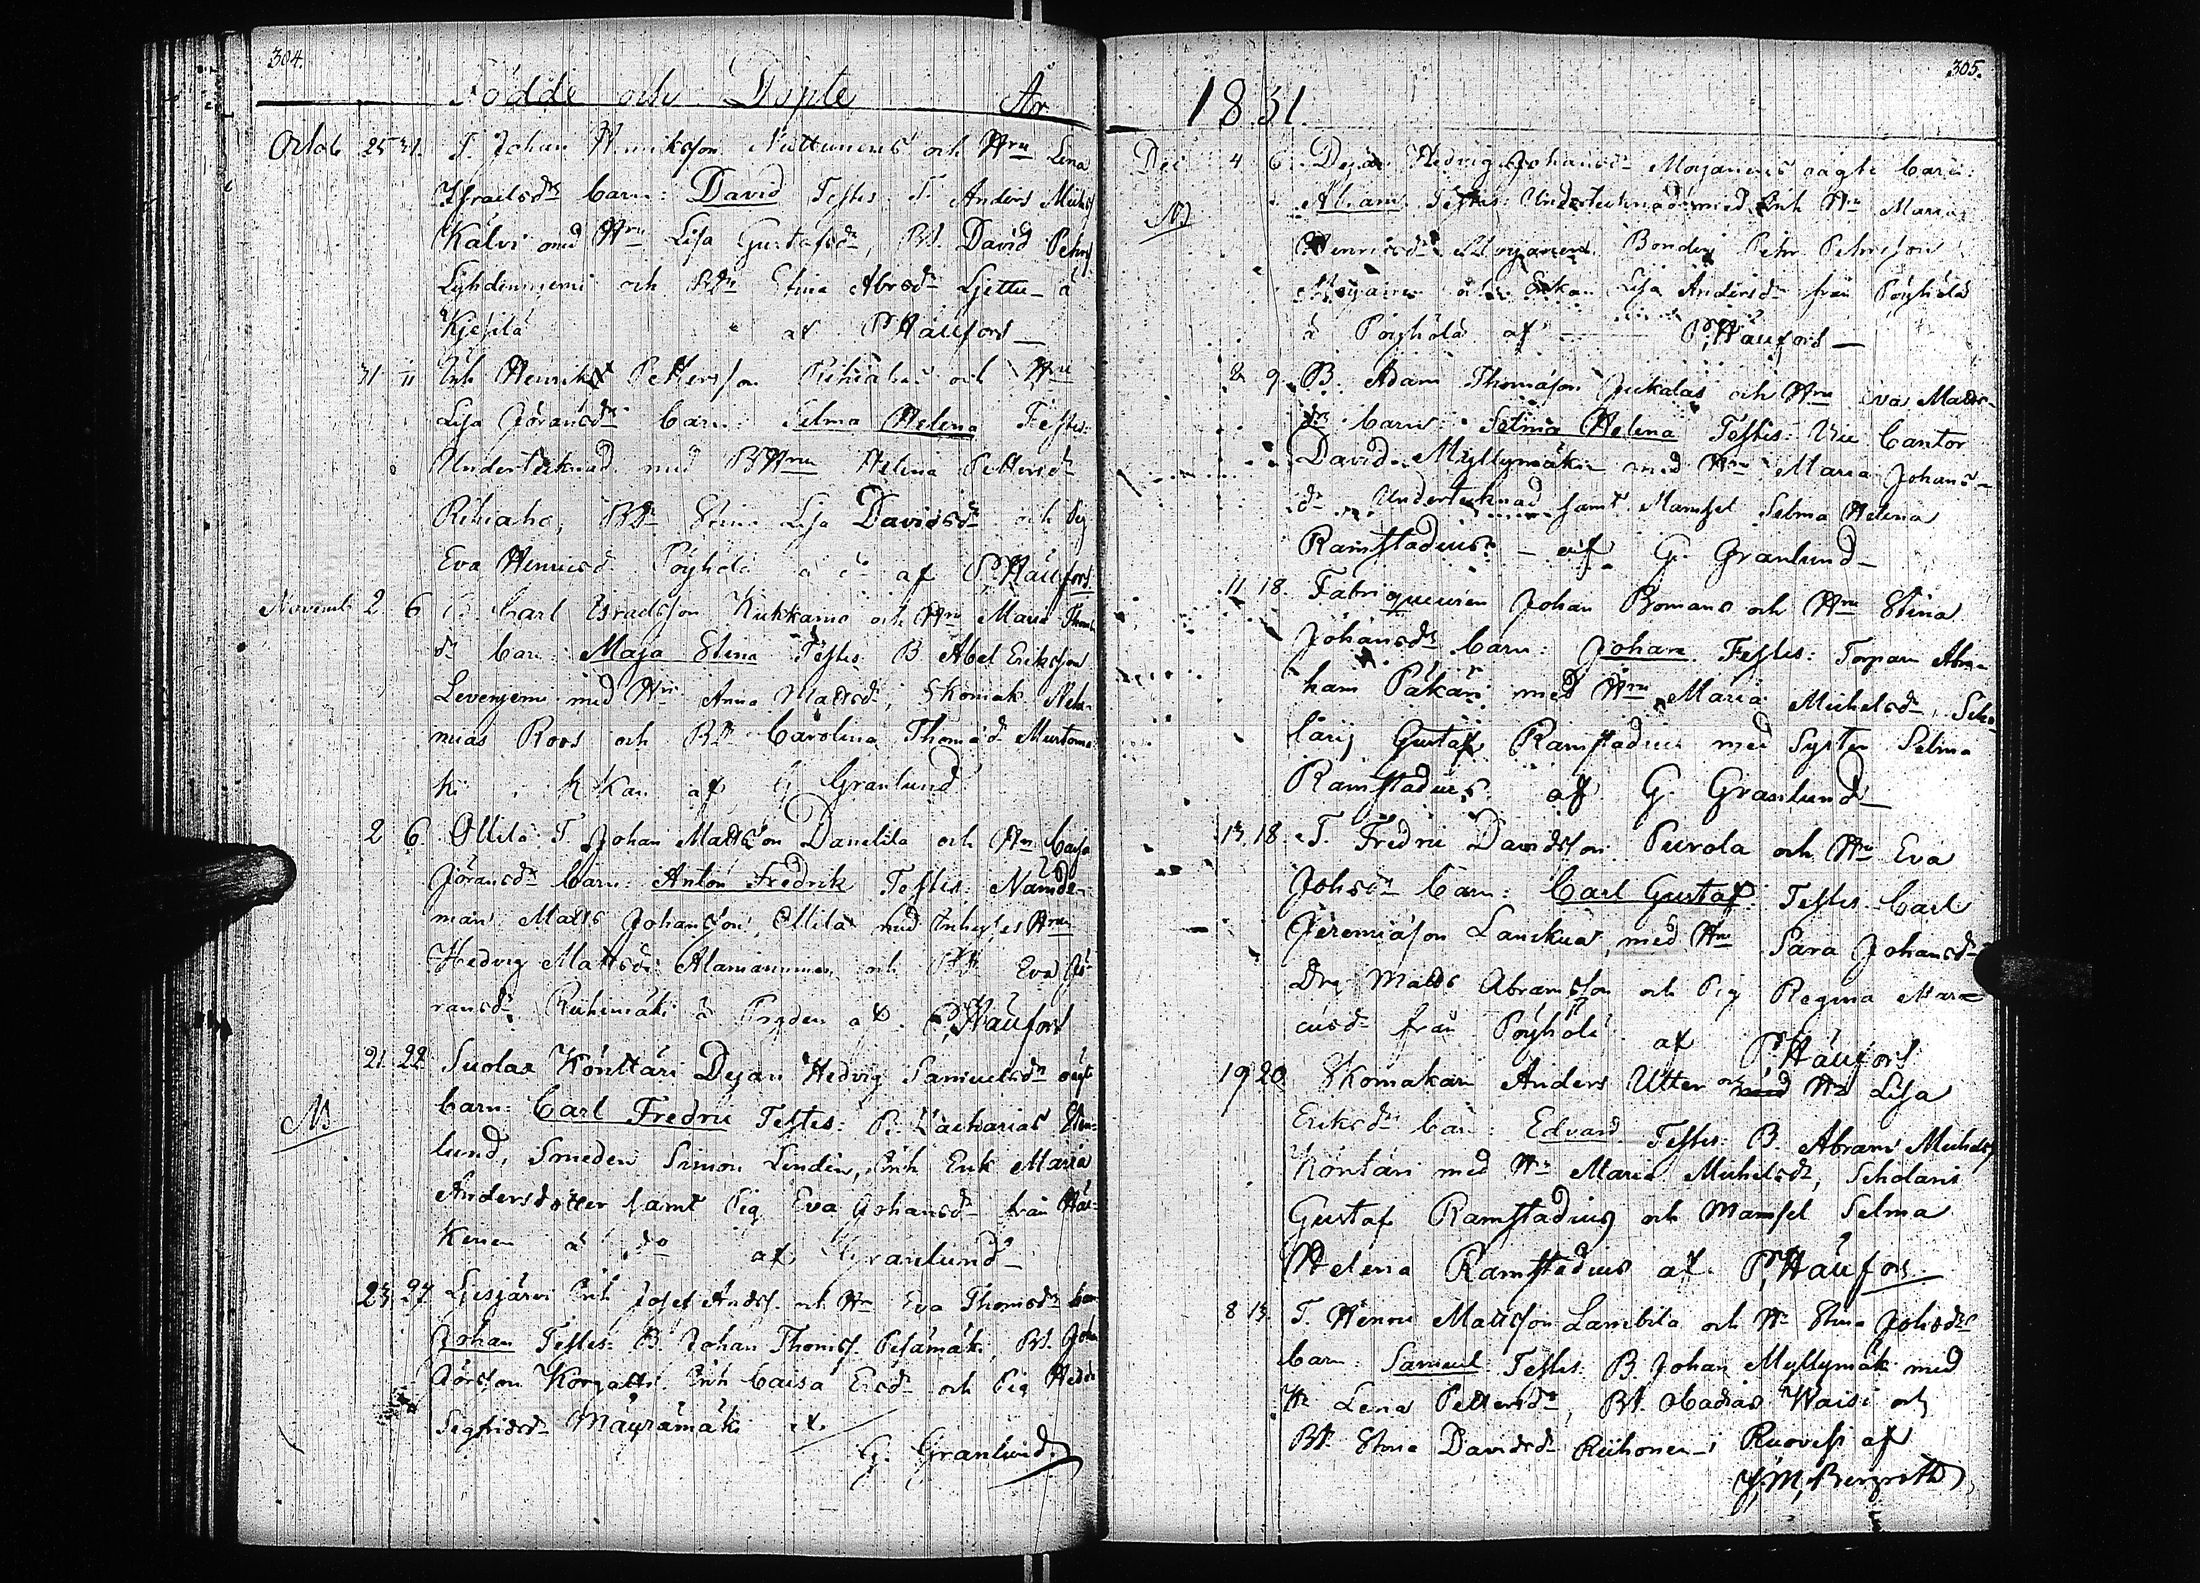 304.
Födde och Döpte År
Octob 25 31. T. Johan Henriksson Nuttunens och Hru Lena
Israelsdr barn: David Testes: T. Anders Michels
Kälvi med Hru Lisa Gustafsdr, BS. David Pehrs
Lyhdinniemi och BDr Stina Abrsdr Ljettu- à
Kjesilä af P. Häufors
31 11 Inh Henrik Pettersson Riihiahos och Hru
Lisa Göransdr barn: Selma Helena Testes:
Undertecknad med BHru Helena Pettersdr
Riihiaho, BDr Stina Lisa Davidsdr och Pig
Eva Henricsd Pöyhölä à do af P. Häufors
Novemb 2 6 B. Carl Israelsson Kukkamo och Hru Maria Thom
dr barn: Maja Stina Testes B Abel Eriksson
Levenjemi med Hru Anna Mattsdr, Skomak Nehe-
mias Roos och BDr Carolina Thomædr Murtomä
ki. i Kkan af G Granlund
2 6. Ollila T. Johan Mattsson Danelila och Hru Caisa
Jöransdr barn: Anton Fredrik Testes: Nämde-
man Matts Johansson Ollila med Inhyses Hru
Hedvig Mattsdr Alamamman och BDr Eva Jö-
ransdr. Riihimäki à Frgden af. P. Häufors
21 22 Suolax Könttäri Dejan Hedvig Samuelsdr oägta
NB
barn: Carl Fredric Testes: B. Zacharias
lund, Smeden Simon Lindin, Inh Enk Maria
Andersdotter samt Pig Eva Johansdr från Har-
kenen à do af Granlund
23 27 Ljesjärvi Inh Josef Anders. och Hru Eva Thomsdr barn
Johan Testes: B. Johan Thomss. Pesämäki, BS. Joha
Görsson Korpatti. Inh Caisa Ersdr och Pig Hedv
Sigfridsdr Mäyrämäki af.
G. Granlund
305.
1831.
Dec 4 6. Dejan Hedvig Johansdr Morjanens oägta barn:
NB
Abram. Testes: Undertecknad med Inh Hru Maria
Henricsdr Morjanen Bonden Pehr Pehrsson
Morjanen och Enkan Lisa Andersdr från Pöyhölä
à Pöyhölä af P. Häufors
8 9 B. Adam Thomasson Jukalas och Hru Eva Matts-
dr barn: Selma Helena Testes: Vice Cantor
David Myllymäki med Hru Maria Johans-
dr Undertecknad samt Mamsel Selma Helena
Ramstadius. af G. Granlund
11 18. Fabriqueuren Johan Bomans och Hru Stina
Johansdr barn: Johan Testes: Torparn Abra-
ham Pakari med Hru Maria Michelsdr, Scho-
laris Gustaf Ramstadius med Syster Selma
Ramstadius. af G. Granlund
13 18. T. Fredric Davidsson Purola och Hru Eva
Johsdr barn: Carl Gustaf: Testes Carl
Jeremiasson Lanskua, med Hru Sara Johansdr
Drg Matts Abramsson och Pig Regina Mar-
cusdr från Pöyhölä af P. Häufors
19 20 Skomakarn Anders Utter och med Hru Lisa
Eriksdr barn: Edvard Testes: B. Abram Michelss
Köntäri med Hru Maria Michelsdr, Scholaris
Gustaf Ramstadius och Mamsel Selma
Helena Ramstadius af P. Häufors
8 13 T. Henric Mattsson Lambila och Hru Stina Johsdrs
barn: Samuel Testes: B. Johan Myllymäk med
Hr Lena Pettersdr, BS. Obadias Waisi och
BD. Stina Davidsdr Riihonen- i Ruovesi af
J. M. Bergroth